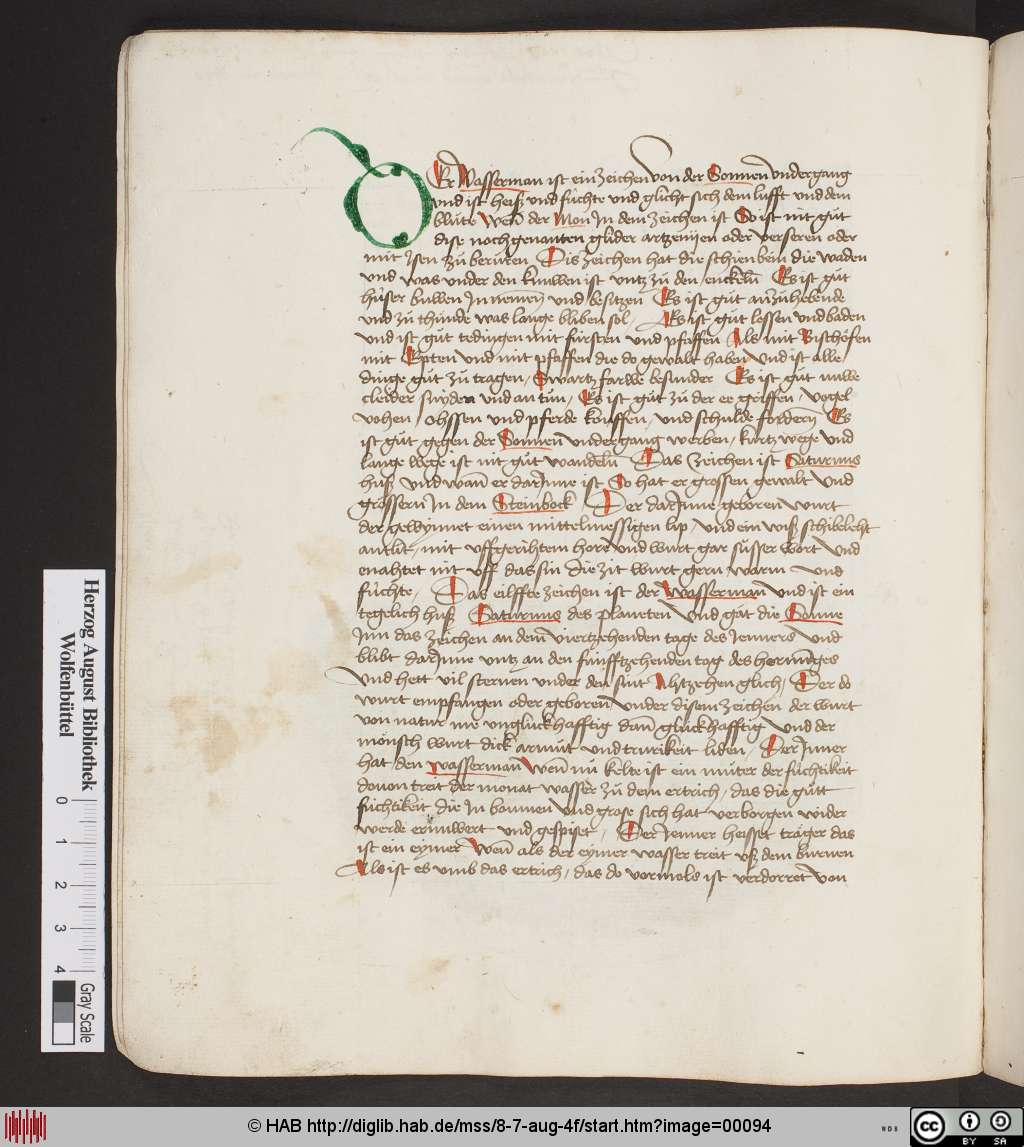 DEr Wasserman ist ein zeichen von der Sonnen vndergang
vnd ist heiß vnd füchte vnd glicht sich dem lufft vnd dem
blüte Wen̄ der Mon Jn dem zeichen ist So ist nit gůt
dise nochgenanten glider artzenyen oder verseren oder
mit ysen zů berüren Dis zeichen hat die schienbein die waden
vnd was vnder den knuwen ist vntz zů den enckeln̄ Es ist gůt
hüser buwen Jn nemen vnd besitzen Es ist gůt an zů hebende
vnd zů thůnde was lange bliben sol / Es ist gůt lossen vnd baden
vnd ist gůt tedingen mit fürsten vnd pfaffen Als mit Bischöfen
mit Epten vnd mit pfaffen die do gewalt haben vnd ist alle
dinge gůt zů tragen / Swartz farwe besunder Es ist gůt nuwe
cleider snyden vnd an tůn / Es ist gůt zů der ee griffen / vogel
vohen / ohssen vnd pferde kouffen / vnd schulde fordern̄ Es
ist gůt gegen der Sonnen vndergang werben / kurtz wege vnd
lange wege ist nit gůt wandeln̄ Das zeichen ist Saturnus
huß vnd wan̄ er darJnne ist So hat er grossen gewalt vnd
grössern Jn dem Steinbock / Der darJnne geboren wurt
der gewynnet einen mittelmessigen lip vnd ein wiß schibelecht
antlit / mit vffgerihtem hore vnd wurt gar süsser wort vnd
enahtet nit vff das sin die zit wurt gern warm vnd
füchte / Das eilffte zeichen ist der wasserman vnd ist ein
tegelich huß Saturnus des planeten vnd gat die Sonne
Jnn das zeichen an dem viertzehenden tage des Jenners vnd
blibt darJnne vntz an den fünfftzehenden tag des hornūges
vnd hett vil sternen vnder den sint Ahtzehen glich / Der do
wurt empfangen oder geboren vnder disem zeichen der wurt
von natur me vnglückhafftig dan̄ glückhafftig vnd der
mönsch wurt dick armůt vnd trurikeit liden / Der Jnner
hat den wasserman wen̄ nů kelte ist ein můter der füchtikeit
douon treit der monat wasser zů dem ertrich / das die gůtt
füchtikeit die Jn boumen vnd grase sich hat verborgen wider
werde ernuwert vnd gespiset / Der Jenner heisset träger das
ist ein eymer Wen̄ als der eymer wasser treit vß dem burnen
Als ist es vmb das ertrich / das do vormols ist verdorret von
Herzog August Bibliothek
Wolfenbüttel
0 1 2 3 4
Gray Scale
© HAB http://diglib.hab.de/mss/8-7-aug-4f/start.htm?image=00094
WDB
cc BY SA